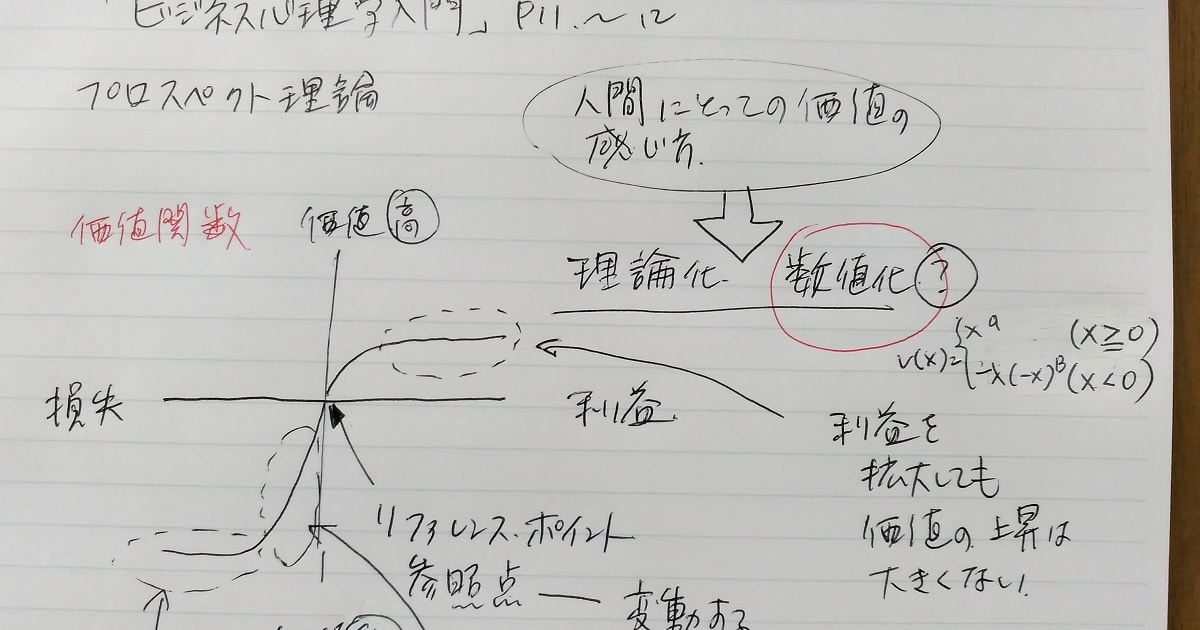 「ビジネス心理学入門」 P11.～12
プロスペクト理論
人間にとっての価値の
感じ方.
価値関数
価値 高
理論化. 数値化 ?
v(x)= { x^a (x≧0)
-λ(-x)^β (x<0)
損失
利益.
利益を
拡大しても
価値の上昇は
大きくない.
リファレンス.ポイント
参照点 — 変動する